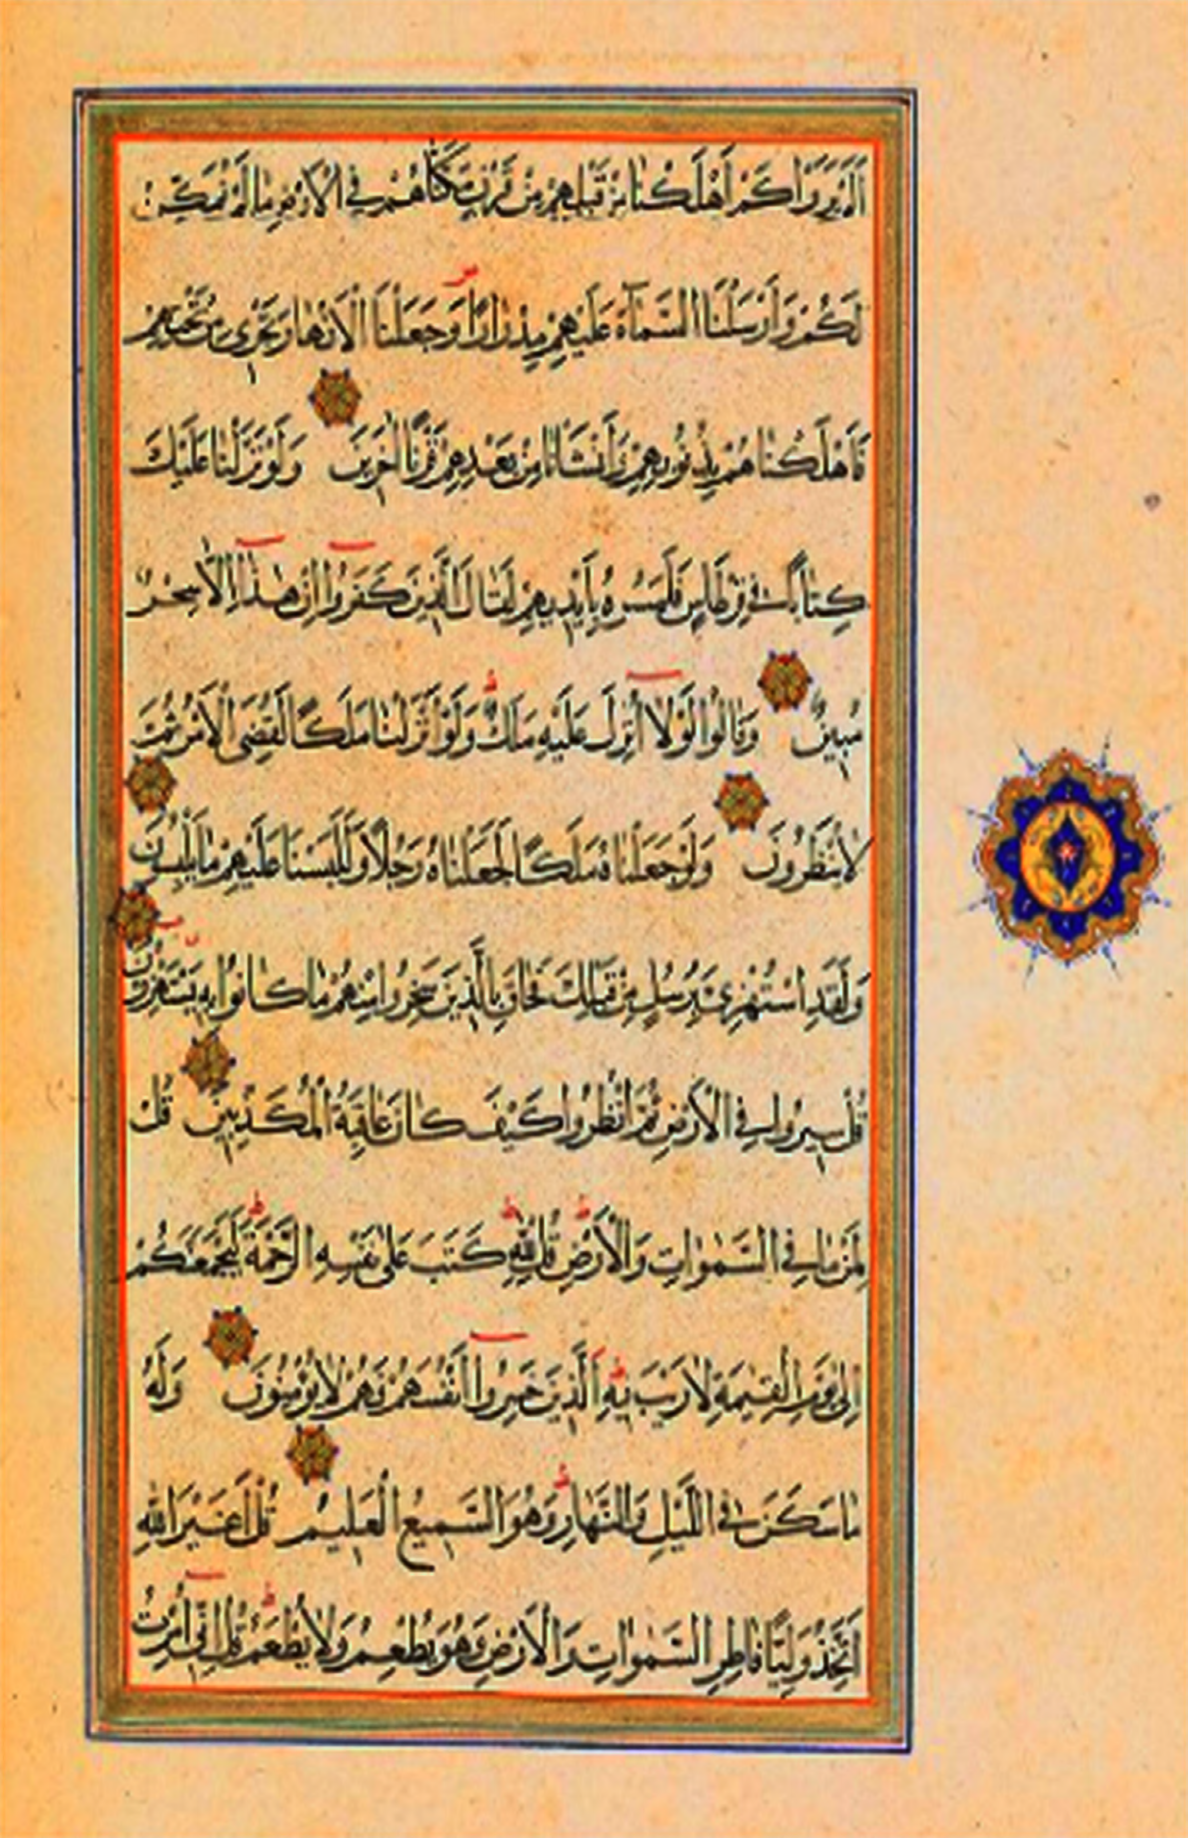 أَلَمْ يَرَوْا كَمْ أَهْلَكْنَا مِنْ قَبْلِهِمْ مِنْ قَرْنٍ مَكَّنَّاهُمْ فِي الْأَرْضِ مَا لَمْ نُمَكِّنْ
لَكُمْ وَأَرْسَلْنَا السَّمَآءَ عَلَيْهِمْ مِدْرَارًا وَجَعَلْنَا الْأَنْهَارَ تَجْرِي مِنْ تَحْتِهِمْ
فَأَهْلَكْنَاهُمْ بِذُنُوبِهِمْ وَأَنْشَأْنَا مِنْ بَعْدِهِمْ قَرْنًا آخَرِينَ وَلَوْ نَزَّلْنَا عَلَيْكَ
كِتَابًا فِي قِرْطَاسٍ فَلَمَسُوهُ بِأَيْدِيهِمْ لَقَالَ الَّذِينَ كَفَرُوا إِنْ هَذَا إِلَّا سِحْرٌ
مُبِينٌ وَقَالُوا لَوْلَا أُنْزِلَ عَلَيْهِ مَلَكٌ وَلَوْ أَنْزَلْنَا مَلَكًا لَقُضِيَ الْأَمْرُ ثُمَّ
لَا يُنْظَرُونَ وَلَوْ جَعَلْنَاهُ مَلَكًا لَجَعَلْنَاهُ رَجُلًا وَلَلَبَسْنَا عَلَيْهِمْ مَا يَلْبِسُونَ
وَلَقَدِ اسْتُهْزِئَ بِرُسُلٍ مِنْ قَبْلِكَ فَحَاقَ بِالَّذِينَ سَخِرُوا مِنْهُمْ مَا كَانُوا بِهِ يَسْتَهْزِؤُنَ
قُلْ سِيرُوا فِي الْأَرْضِ ثُمَّ انْظُرُوا كَيْفَ كَانَ عَاقِبَةُ الْمُكَذِّبِينَ قُلْ
لِمَنْ مَا فِي السَّمٰوَاتِ وَالْأَرْضِ قُلْ لِلّٰهِ كَتَبَ عَلَى نَفْسِهِ الرَّحْمَةَ لَيَجْمَعَنَّكُمْ
إِلَى يَوْمِ الْقِيٰمَةِ لَا رَيْبَ فِيهِ الَّذِينَ خَسِرُوا أَنْفُسَهُمْ فَهُمْ لَا يُؤْمِنُونَ وَلَهُ
مَا سَكَنَ فِي اللَّيْلِ وَالنَّهَارِ وَهُوَ السَّمِيعُ الْعَلِيمُ قُلْ أَغَيْرَ اللّٰهِ
أَتَّخِذُ وَلِيًّا فَاطِرِ السَّمٰوَاتِ وَالْأَرْضِ وَهُوَ يُطْعِمُ وَلَا يُطْعَمُ قُلْ إِنِّي أُمِرْتُ